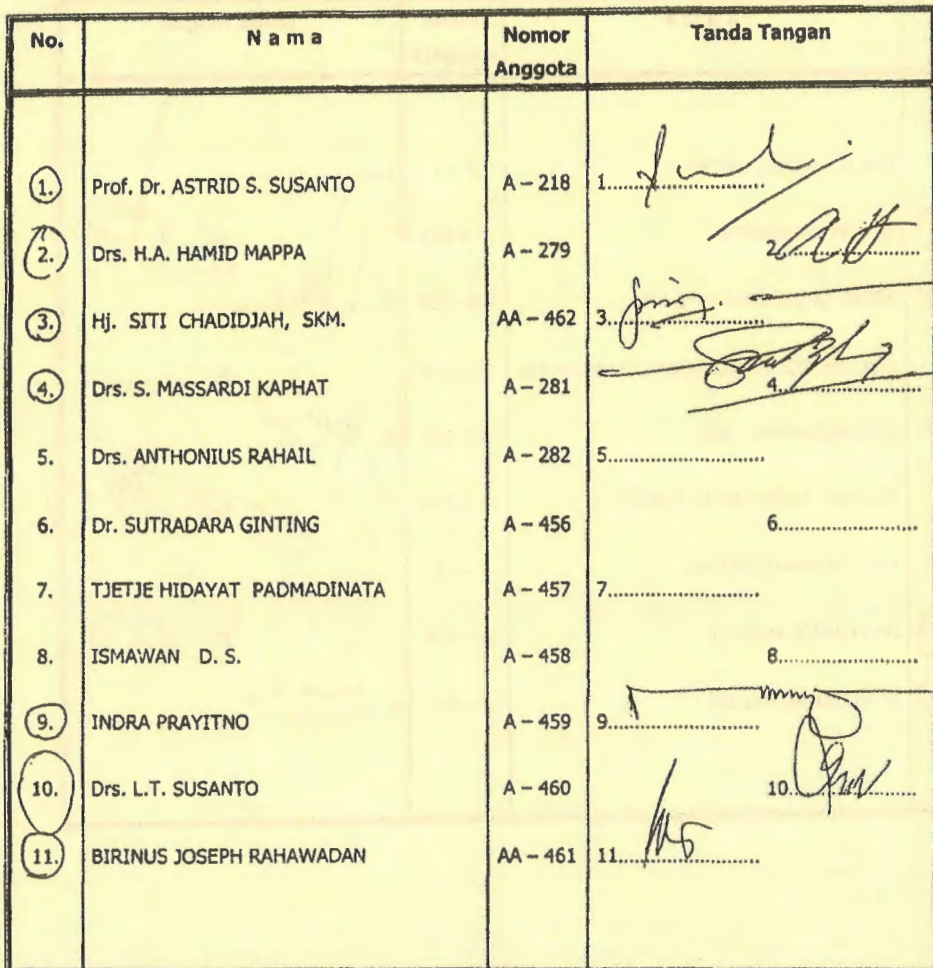 No. N a m a Nomor Anggota Tanda Tangan
1. Prof. Dr. ASTRID S. SUSANTO A – 218 1..............................
2. Drs. H.A. HAMID MAPPA A – 279 2..............................
3. Hj. SITI CHADIDJAH, SKM. AA – 462 3..............................
4. Drs. S. MASSARDI KAPHAT A – 281 4..............................
5. Drs. ANTHONIUS RAHAIL A – 282 5..............................
6. Dr. SUTRADARA GINTING A – 456 6..............................
7. TJETJE HIDAYAT PADMADINATA A – 457 7..............................
8. ISMAWAN D. S. A – 458 8..............................
9. INDRA PRAYITNO A – 459 9..............................
10. Drs. L.T. SUSANTO A – 460 10..............................
11. BIRINUS JOSEPH RAHAWADAN AA – 461 11..............................